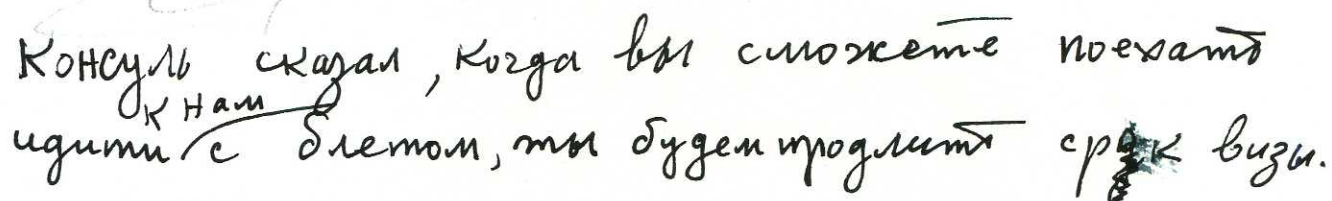 Консуль сказал, когда вы сможете поехать
идити к нам с блетом, мы будем продлить срок визы.